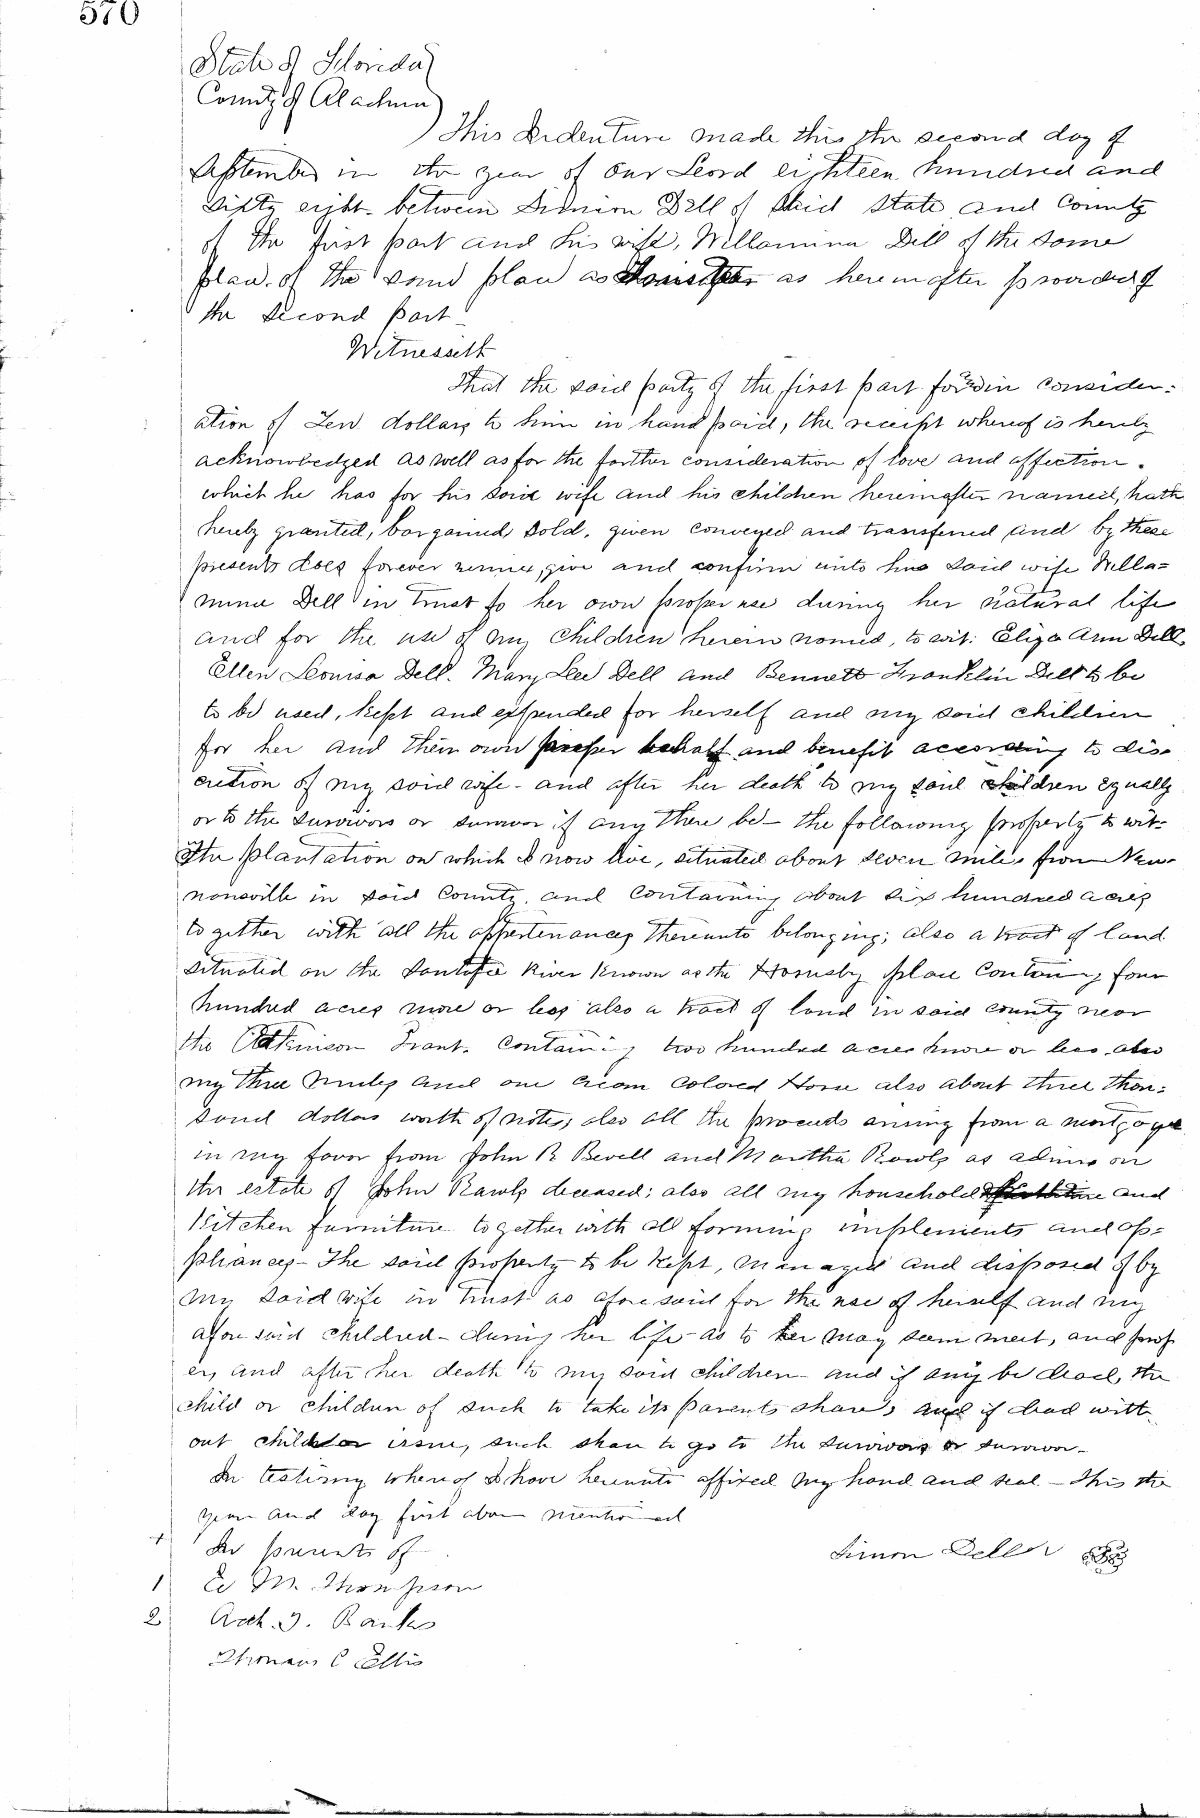 570
State of Florida)
County of Alachua)
This Indenture made this the second day of
September in the year of our Leord eighteen hundred and
sixty eight. between Simion Dell of said State and County
of the first part and his wife, Willamina Dell of the same
place. of the same place as as hereinafter provided of
the second part
Witnesseth
that the said party of the first part for & in consider=
ation of Ten dollars to him in hand paid, the receipt whereof is hereby
acknowledged as well as for the further consideration of love and affection.
which he has for his said wife and his children hereinafter named, hath
hereby granted, bargained, sold, given conveyed and transferred and by these
presents does forever remise, give and confirm unto his said wife Willa=
mina Dell in trust to her own proper use during her natural life
and for the use of my children herein named, to wit: Eliza Ann Dell,
Ellen Leouisa Dell. Mary Lee Dell and Bennett Franklin Dell to be
to be used, kept and expended for herself and my said children
for her and their own proper behalf and benefit according to dis-
cretion of my said wife - and after her death to my said children equally
or to the survivors or survivor if any there be - the following property to wit-
The plantation on which I now live, situated about seven miles from New-
nansville in said County, and containing about six hundred acres
together with all the appertenances thereunto belonging; also a tract of land
situated on the Santafee River known as the Hornsby place containing four
hundred acres more or less also a tract of land in said county near
the Atkinson Grant. containing two hundred acres more or less also
my three mules and one cream colored Horse also about three thou=
sand dollars worth of notes; also all the proceeds arising from a mortgage
in my favor from John R Bevell and Martha Rawls as admrs on
the estate of John Rawls deceased; also all my household and
Kitchen furniture together with all farming implements and ap=
pliances - The said property to be kept, managed and disposed of by
my said wife in trust as aforesaid for the use of herself and my
afore said children - during her life - as to her may seem meet, and prop
er, and after her death to my said children - and if any be dead, the
child or children of such to take its parents share, and if dead with
out child or issue, such share to go to the survivors or survivor -
In testimy whereof I have hereunto affixed my hand and seal - this the
year and day first above mentioned
In presents of
Simon Dell
1 M. Thompson
2 Arch. J. Banks
Thomas C Ellis